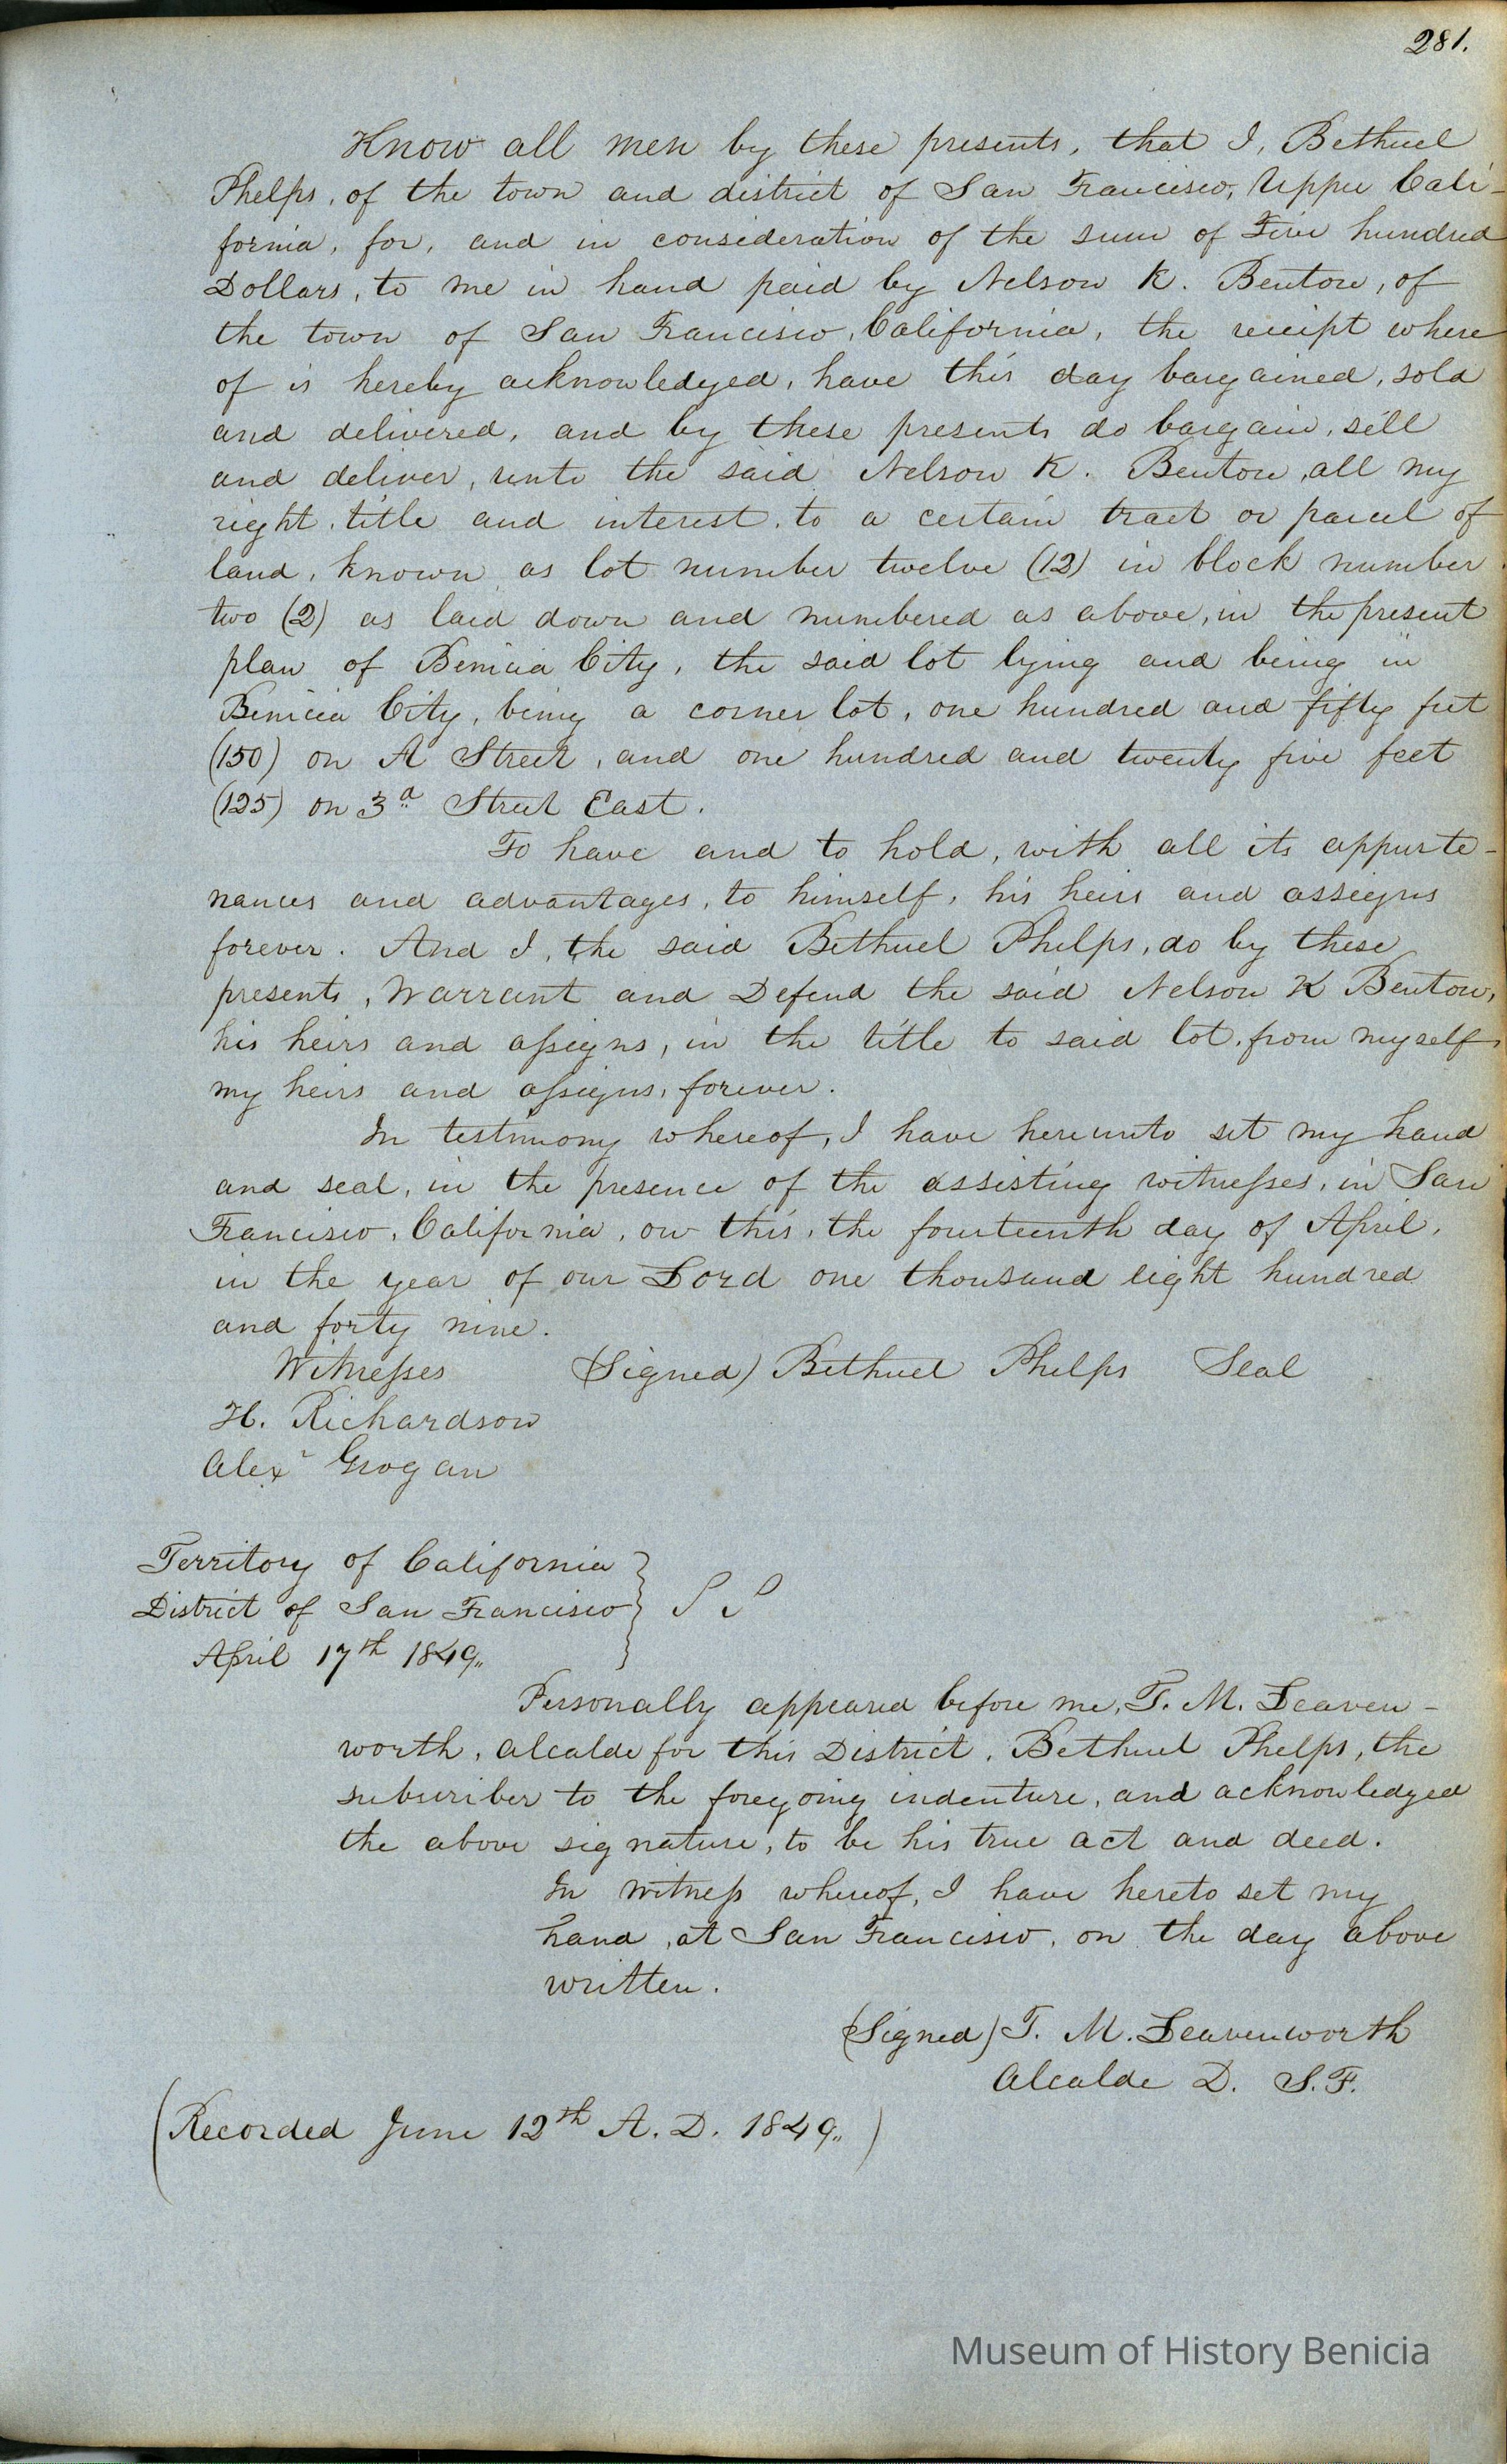 281.
Know all men by these presents, that I, Bethuel
Phelps, of the town and district of San Francisco, Upper Cali-
fornia, for, and in consideration of the sum of Five hundred
Dollars, to me in hand paid by Nelson K. Benton, of
the town of San Francisco, California, the receipt where
of is hereby acknowledged, have this day bargained, sold
and delivered, and by these presents do bargain, sell
and deliver, unto the said Nelson K. Benton, all my
right, title and interest, to a certain tract or parcel of
land, known as lot number twelve (12) in block number
two (2) as laid down and numbered as above, in the present
plan of Benicia City, the said lot lying and being in
Benicia City, being a corner lot, one hundred and fifty feet
(150) on A Street, and one hundred and twenty five feet
(125) on 3d Street East.
To have and to hold, with all its appurte-
nances and advantages, to himself, his heirs and assigns
forever. And I, the said Bethuel Phelps, do by these
presents, Warrant and Defend the said Nelson K Benton,
his heirs and assigns, in the title to said lot, from myself,
my heirs and assigns, forever.
In testimony whereof, I have hereunto set my hand
and seal, in the presence of the assisting witnesses, in San
Francisco, California, on this, the fourteenth day of April,
in the year of our Lord one thousand eight hundred
and forty nine.
Witnesses (Signed) Bethuel Phelps Seal
H. Richardson
Alexr Grogan
Territory of California
District of San Francisco } S S
April 17th 1849
Personally appeared before me, T. M. Leaven-
worth, Alcalde for this District, Bethuel Phelps, the
subscriber to the foregoing indenture, and acknowledged
the above signature, to be his true act and deed.
In Witness whereof, I have hereto set my
hand, at San Francisco, on the day above
written.
(Signed) T. M. Leavenworth
Alcalde D. S. F.
(Recorded June 12th A. D. 1849)
Museum of History Benicia